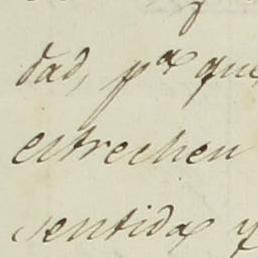 dad, pª que
estrechen
sentidas y